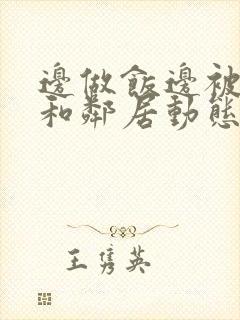 邊做飯邊被
和鄰居動態
王雋英